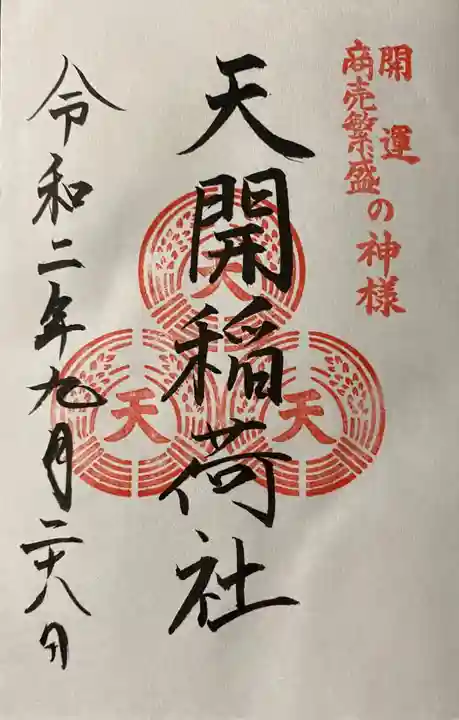 開運
商売繁盛の神様
天開稲荷社
天
天
天
令和二年九月二十八日